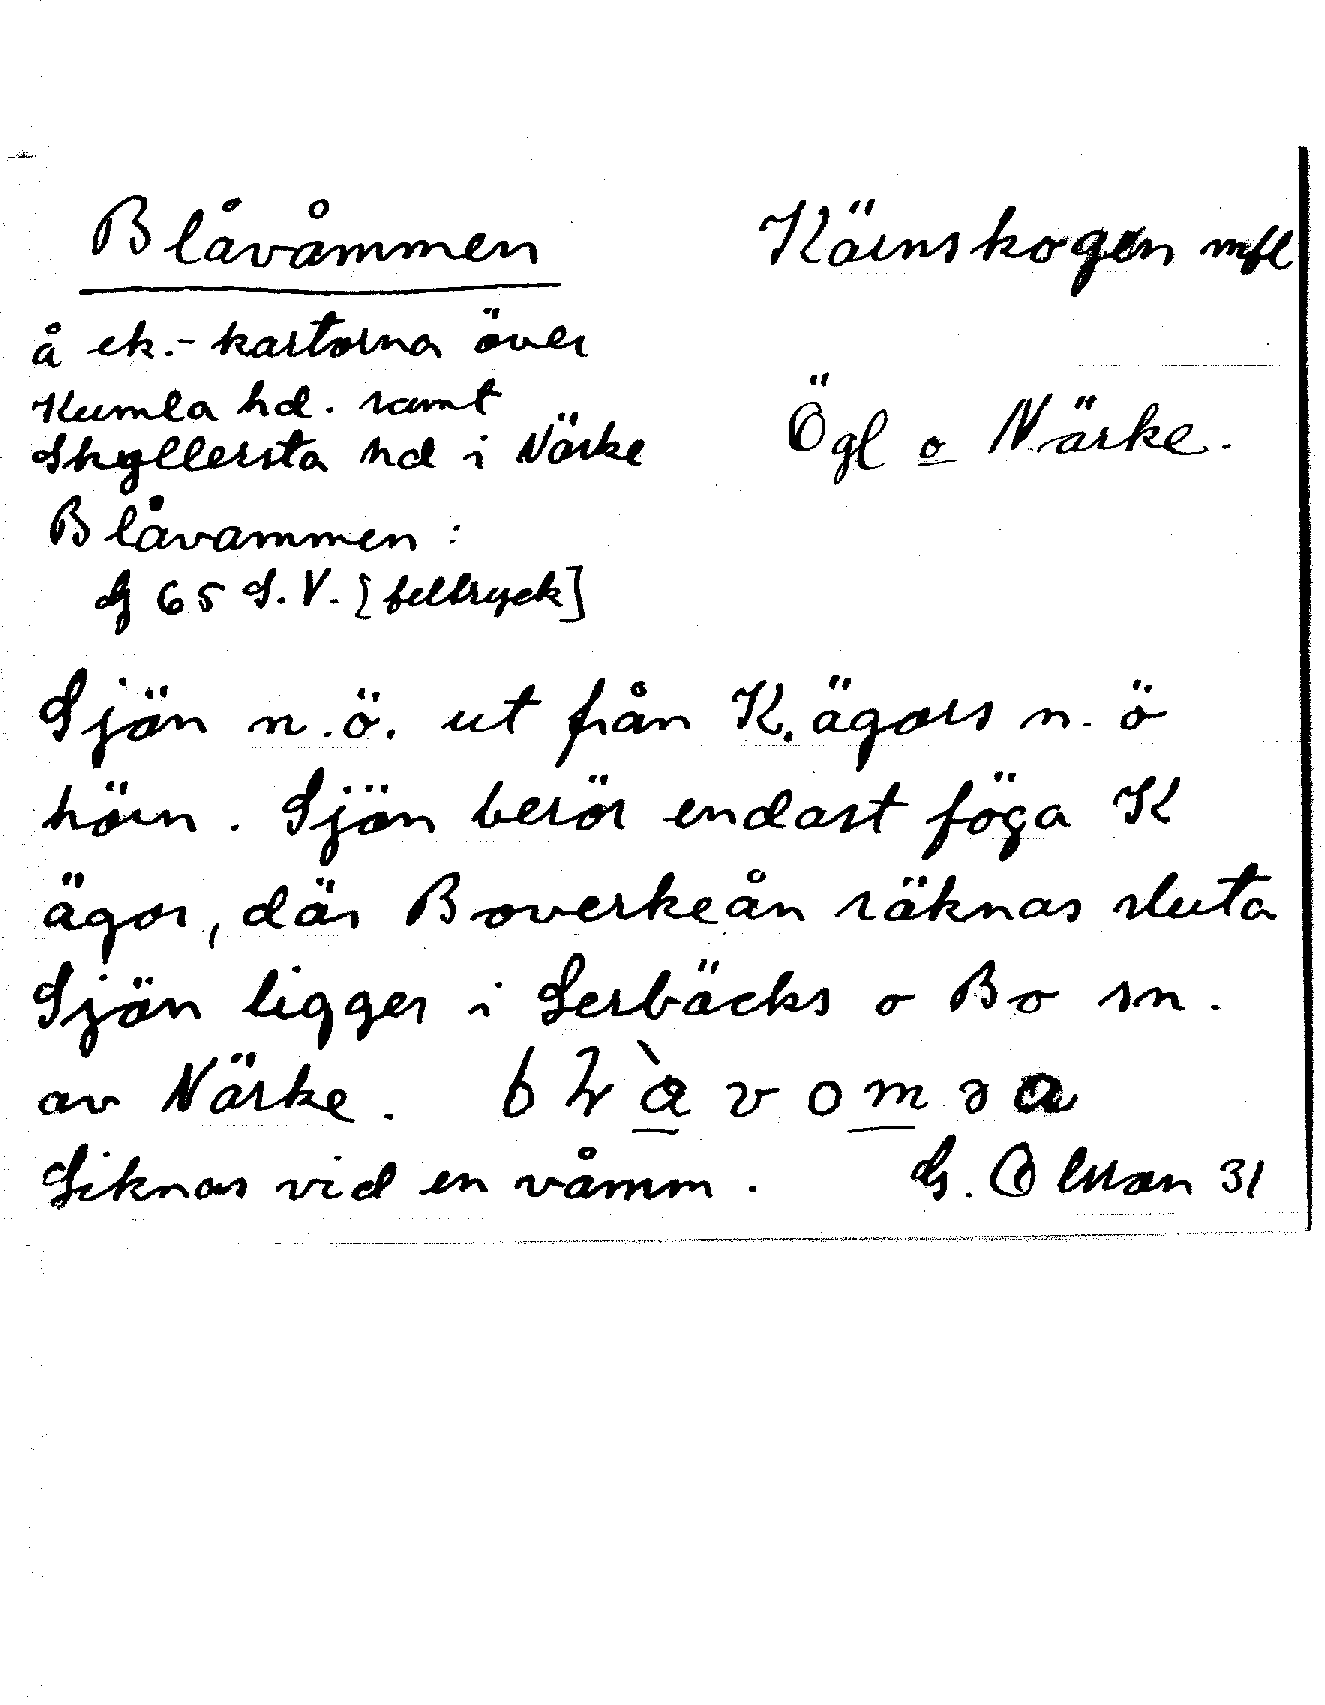 Blåvåmmen
Kärnskogen mfl
å ek.- kartorna över
Kumla hd. samt
Skyllersta hd i Närke
Ögl o Närke.
Blåvammen:
G 65 S.V. [feltryck]
Sjön n.ö. ut från K. ägors n. ö
hörn. Sjön berör endast föga K
ägor, där Boverkeån räknas sluta
Sjön ligger i Lerbäcks o Bo sn.
av Närke.
Liknas vid en våmm. G. Olsson 31